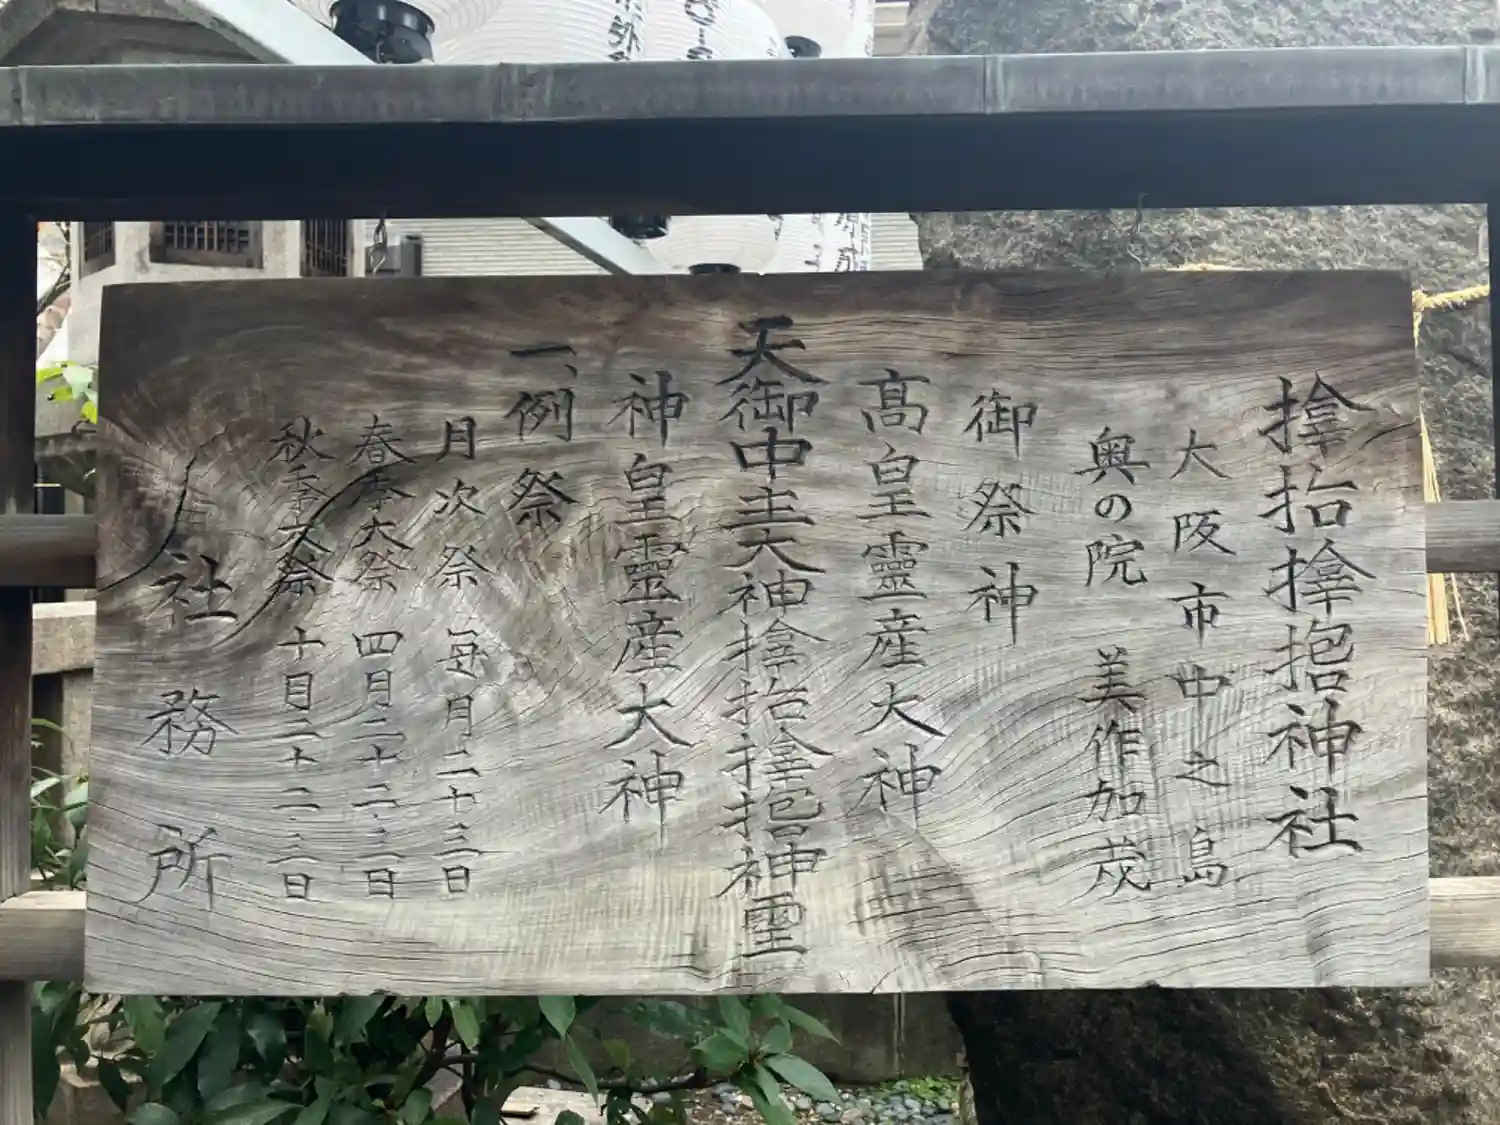 𪮷𫝼𪮷𫽗神社
大阪市中之島
奥の院 美作加茂
御祭神
髙皇靈産大神
天御中主大神𪮷𫝼𪮷𫽗神霊
神皇靈産大神
一、例祭
月次祭 毎月二十三日
春季大祭 四月二十二・三日
秋季大祭 十月二十二・三日
社務所